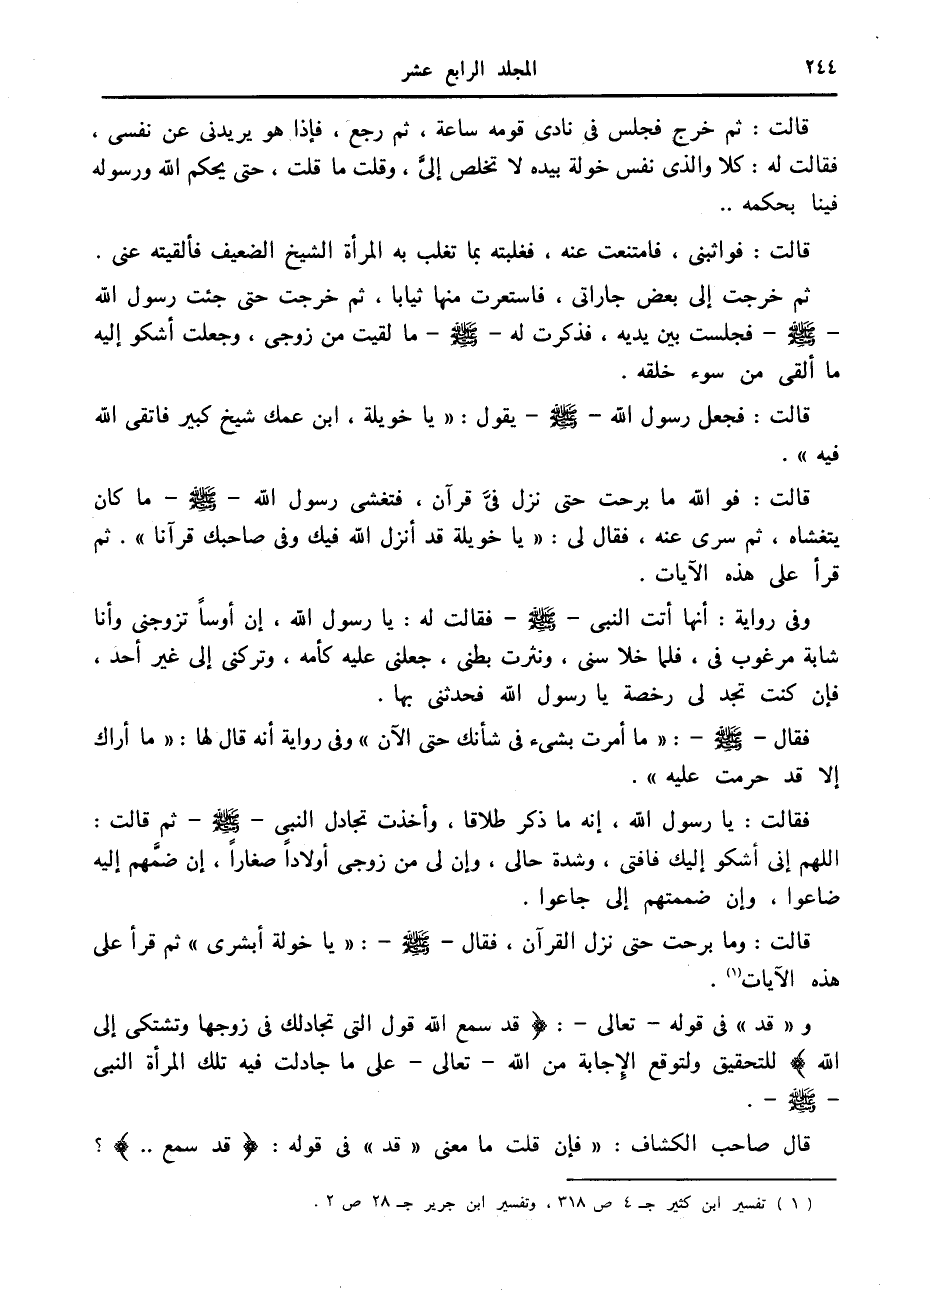 ٢٤٤ المجلد الرابع عشر
قالت : ثم خرج فجلس فى نادى قومه ساعة ، ثم رجع ، فإذا هو يريدنى عن نفسى ،
فقالت له : كلا والذى نفس خولة بيده لا تخلص إلىَّ ، وقلت ما قلت ، حتى يحكم الله ورسوله
فينا بحكمه ..
قالت : فواثبنى ، فامتنعت عنه ، فغلبته بما تغلب به المرأة الشيخ الضعيف فألقيته عنى .
ثم خرجت إلى بعض جاراتى ، فاستعرت منها ثيابا ، ثم خرجت حتى جئت رسول الله
- ﷺ - فجلست بين يديه ، فذكرت له - ﷺ - ما لقيت من زوجى ، وجعلت أشكو إليه
ما ألقى من سوء خلقه .
قالت : فجعل رسول الله - ﷺ - يقول : « يا خويلة ، ابن عمك شيخ كبير فاتقى الله
فيه » .
قالت : فو الله ما برحت حتى نزل فىَّ قرآن ، فتغشى رسول الله - ﷺ - ما كان
يتغشاه ، ثم سرى عنه ، فقال لى : « يا خويلة قد أنزل الله فيك وفى صاحبك قرآنا » . ثم
قرأ على هذه الآيات .
وفى رواية : أنها أتت النبى - ﷺ - فقالت له : يا رسول الله ، إن أوساً تزوجنى وأنا
شابة مرغوب فى ، فلما خلا سنى ، ونثرت بطنى ، جعلنى عليه كأمه ، وتركنى إلى غير أحد ،
فإن كنت تجد لى رخصة يا رسول الله فحدثنى بها .
فقال - ﷺ - : « ما أمرت بشىء فى شأنك حتى الآن » وفى رواية أنه قال لها : « ما أراك
إلا قد حرمت عليه » .
فقالت : يا رسول الله ، إنه ما ذكر طلاقا ، وأخذت تجادل النبى - ﷺ - ثم قالت :
اللهم إنى أشكو إليك فاقتى ، وشدة حالى ، وإن لى من زوجى أولاداً صغاراً ، إن ضمَّهم إليه
ضاعوا ، وإن ضممتهم إلى جاعوا .
قالت : وما برحت حتى نزل القرآن ، فقال - ﷺ - : « يا خولة أبشرى » ثم قرأ على
هذه الآيات(١) .
و « قد » فى قوله - تعالى - : ﴿ قد سمع الله قول التى تجادلك فى زوجها وتشتكى إلى
الله ﴾ للتحقيق ولتوقع الإجابة من الله - تعالى - على ما جادلت فيه تلك المرأة النبى
- ﷺ - .
قال صاحب الكشاف : « فإن قلت ما معنى « قد » فى قوله : ﴿ قد سمع .. ﴾ ؟
( ١ ) تفسير ابن كثير جـ ٤ ص ٣١٨ ، وتفسير ابن جرير جـ ٢٨ ص ٢ .